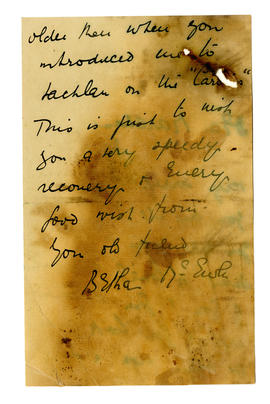 older then when you
introduced me to
Lachlan on the "
This is just to wish
you a very speedy
recovery & Every
good wish from
your old friend